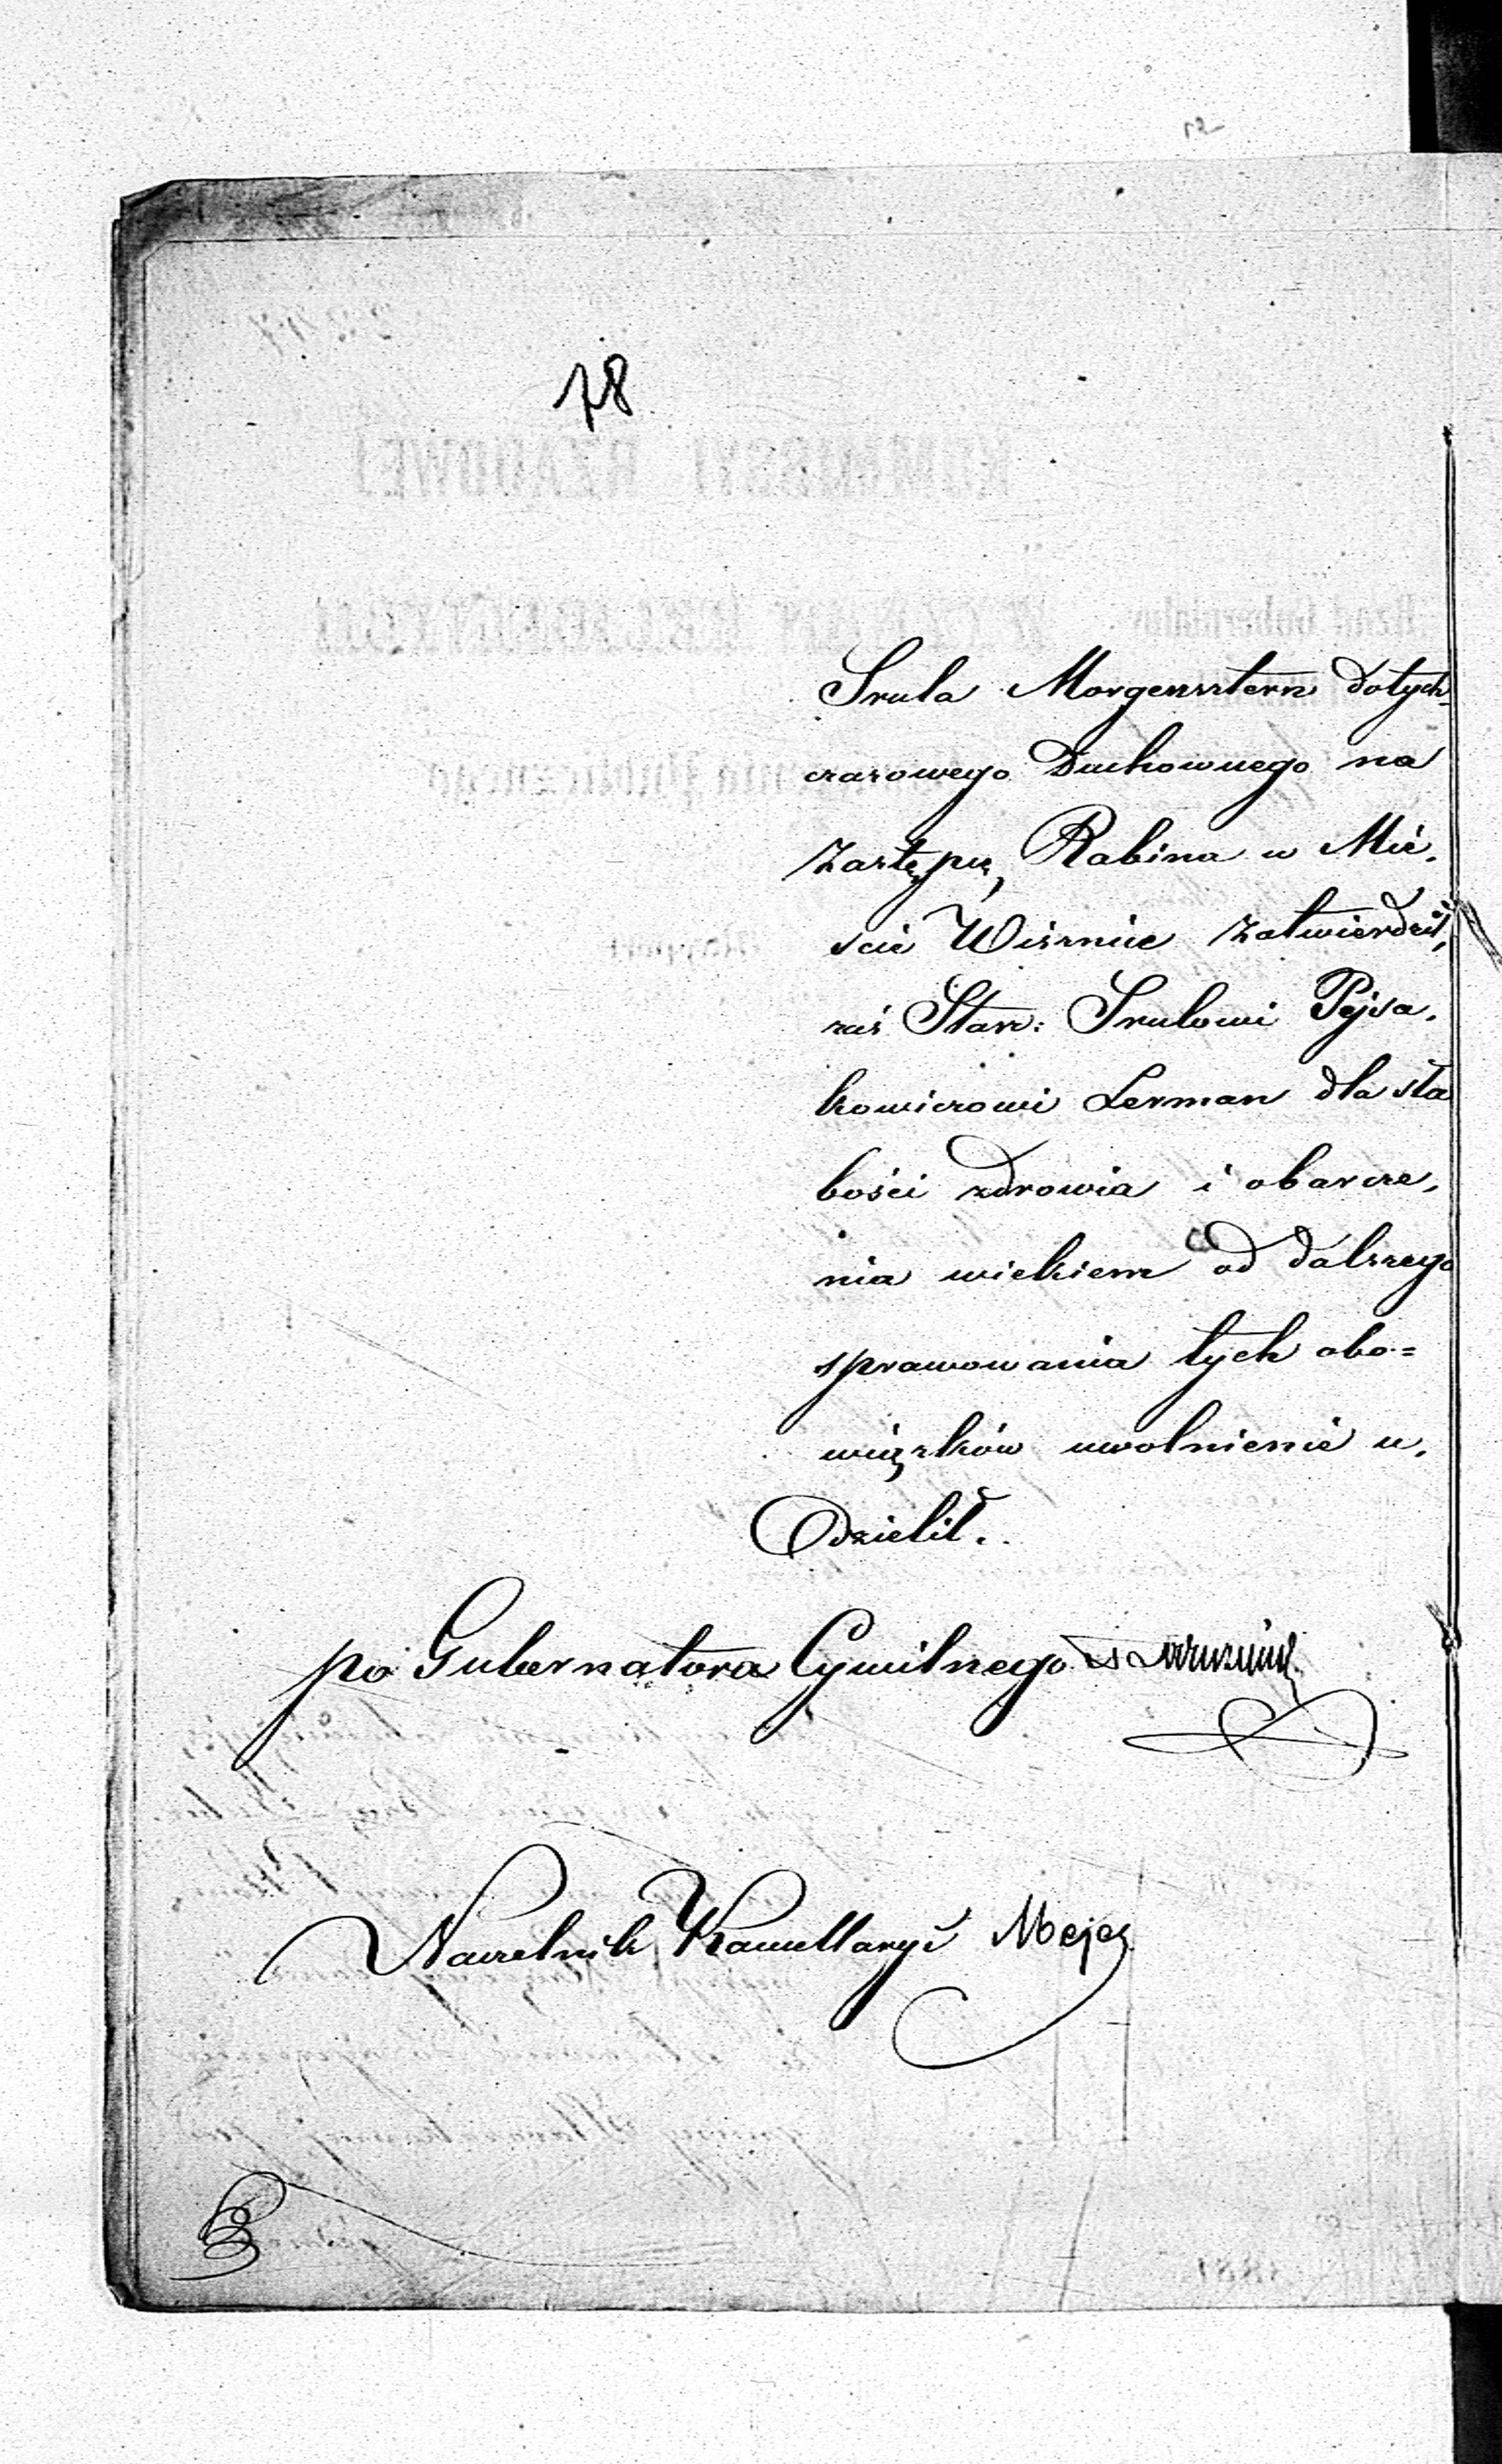 78
Srula Morgensztern dotych-
czasowego Duchownego na
Zastępcę Rabina w Mie,
scie Wisznice zatwierdził,
zaś Starz: Srulowi Pejsa,
kowiczowi Lerman dla sła
bości zdrowia i obarcze,
nia wiekiem od dalszego
sprawowania tych obo=
wiązków uwolnienie u,
dzielił.
po Gubernatora Cywilnego
Naczelnik Kancellaryi